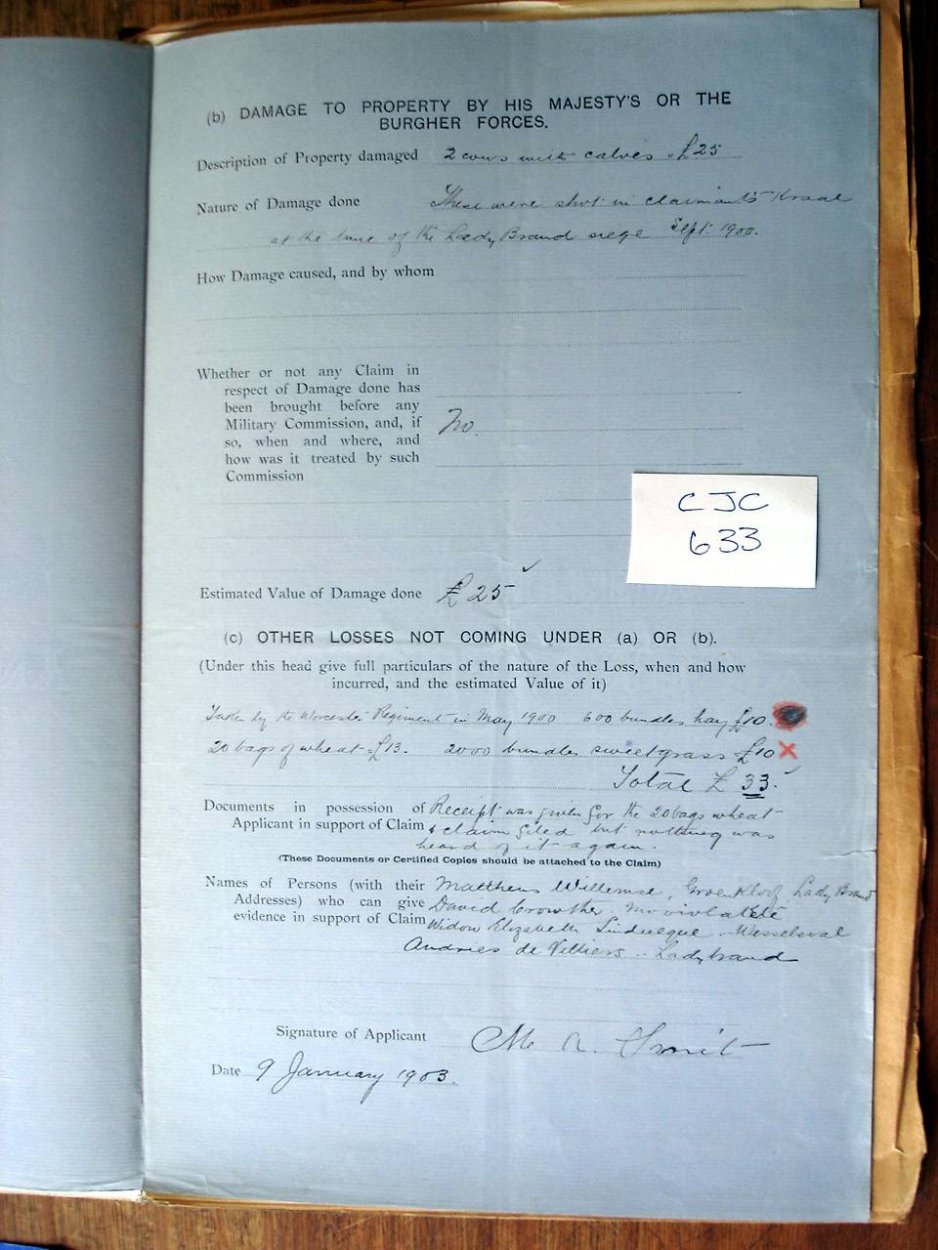 (b) DAMAGE TO PROPERTY BY HIS MAJESTY'S OR THE
BURGHER FORCES.
Description of Property damaged 2 cows with calves £25
Nature of Damage done These were shot in claimants Kraal
at the time of the Lady Brand siege Sept. 1900.
How Damage caused, and by whom
Whether or not any Claim in
respect of Damage done has
been brought before any
Military Commission, and, if
so, when and where, and
how was it treated by such
Commission
No.
CJC
633
Estimated Value of Damage done £25
(c) OTHER LOSSES NOT COMING UNDER (a) OR (b).
(Under this head give full particulars of the nature of the Loss, when and how
incurred, and the estimated Value of it)
Taken by the Worcester Regiment in May 1900 600 bundles hay £10.
20 bags of wheat £13. 2000 bundles sweetgrass £10
Total £33.
Documents in possession of Receipt was given for the 20 bags wheat
Applicant in support of Claim & claim filed but nothing was
heard of it again.
(These Documents or Certified Copies should be attached to the Claim)
Names of Persons (with their Matthens Willemse, Groenkloof, Lady Brand
Addresses) who can give David Crowther,
evidence in support of Claim Widow Elizabeth
Andries de Villiers .. Ladybrand
Signature of Applicant M. A. Smit
Date 9 January 1903.